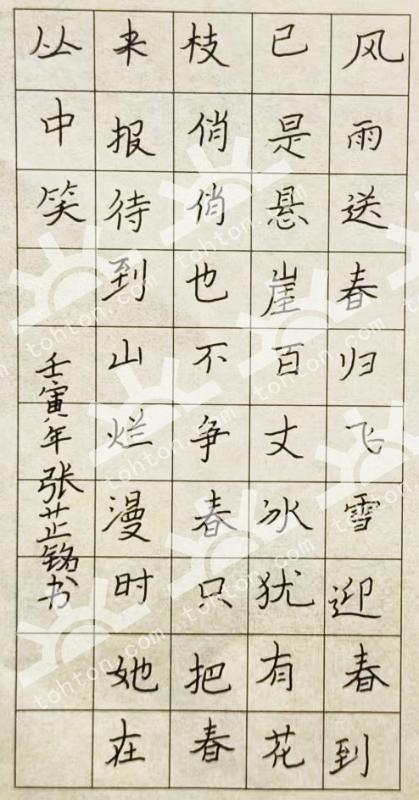 风雨送春归飞雪迎春到
已是悬崖百丈冰犹有花
枝俏俏也不争春只把春
来报待到山烂漫时她在
丛中笑
壬寅年张芷铭书
tohton.com
tohton.com
tohton.com
tohton.com
tohton.com
tohton.com